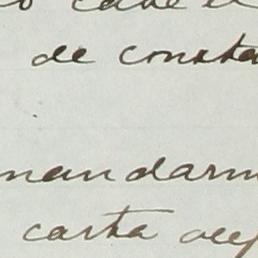 cabe el
de consta
mandarm
carta